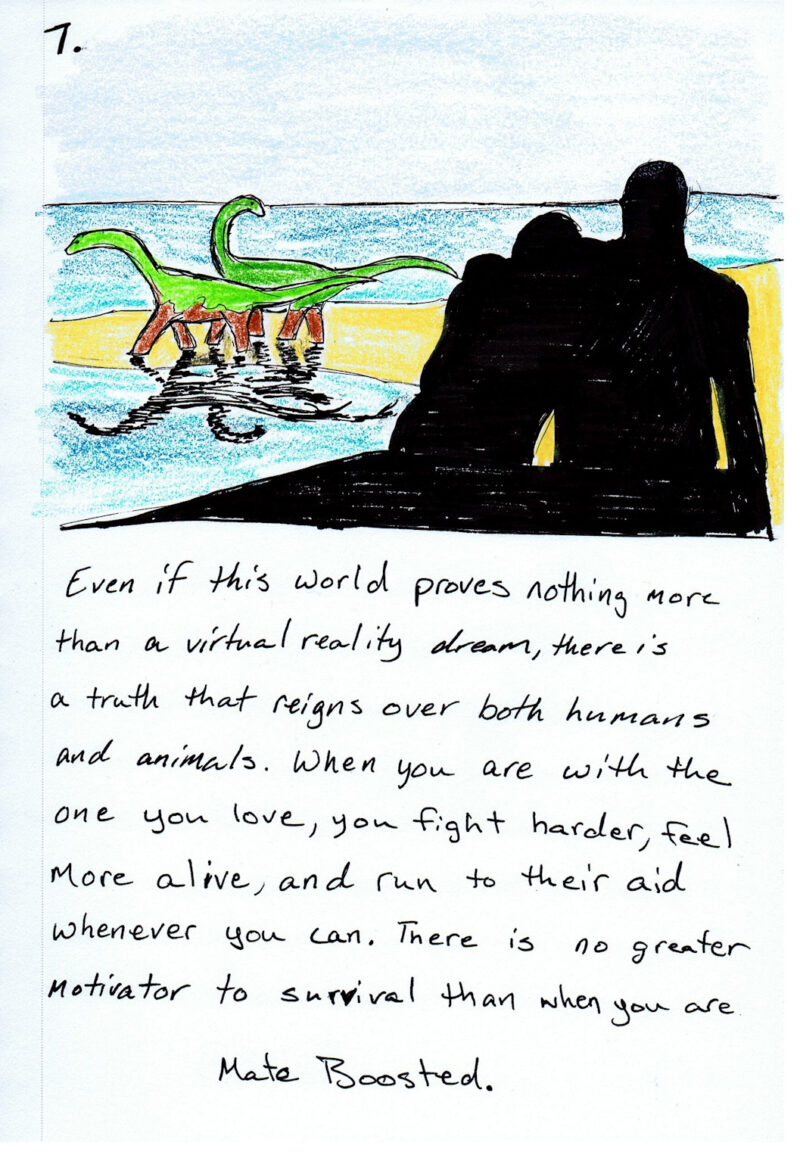 7.
Even if this world proves nothing more
than a virtual reality dream, there is
a truth that reigns over both humans
and animals. When you are with the
one you love, you fight harder, feel
more alive, and run to their aid
whenever you can. There is no greater
motivator to survival than when you are
Mate Boosted.